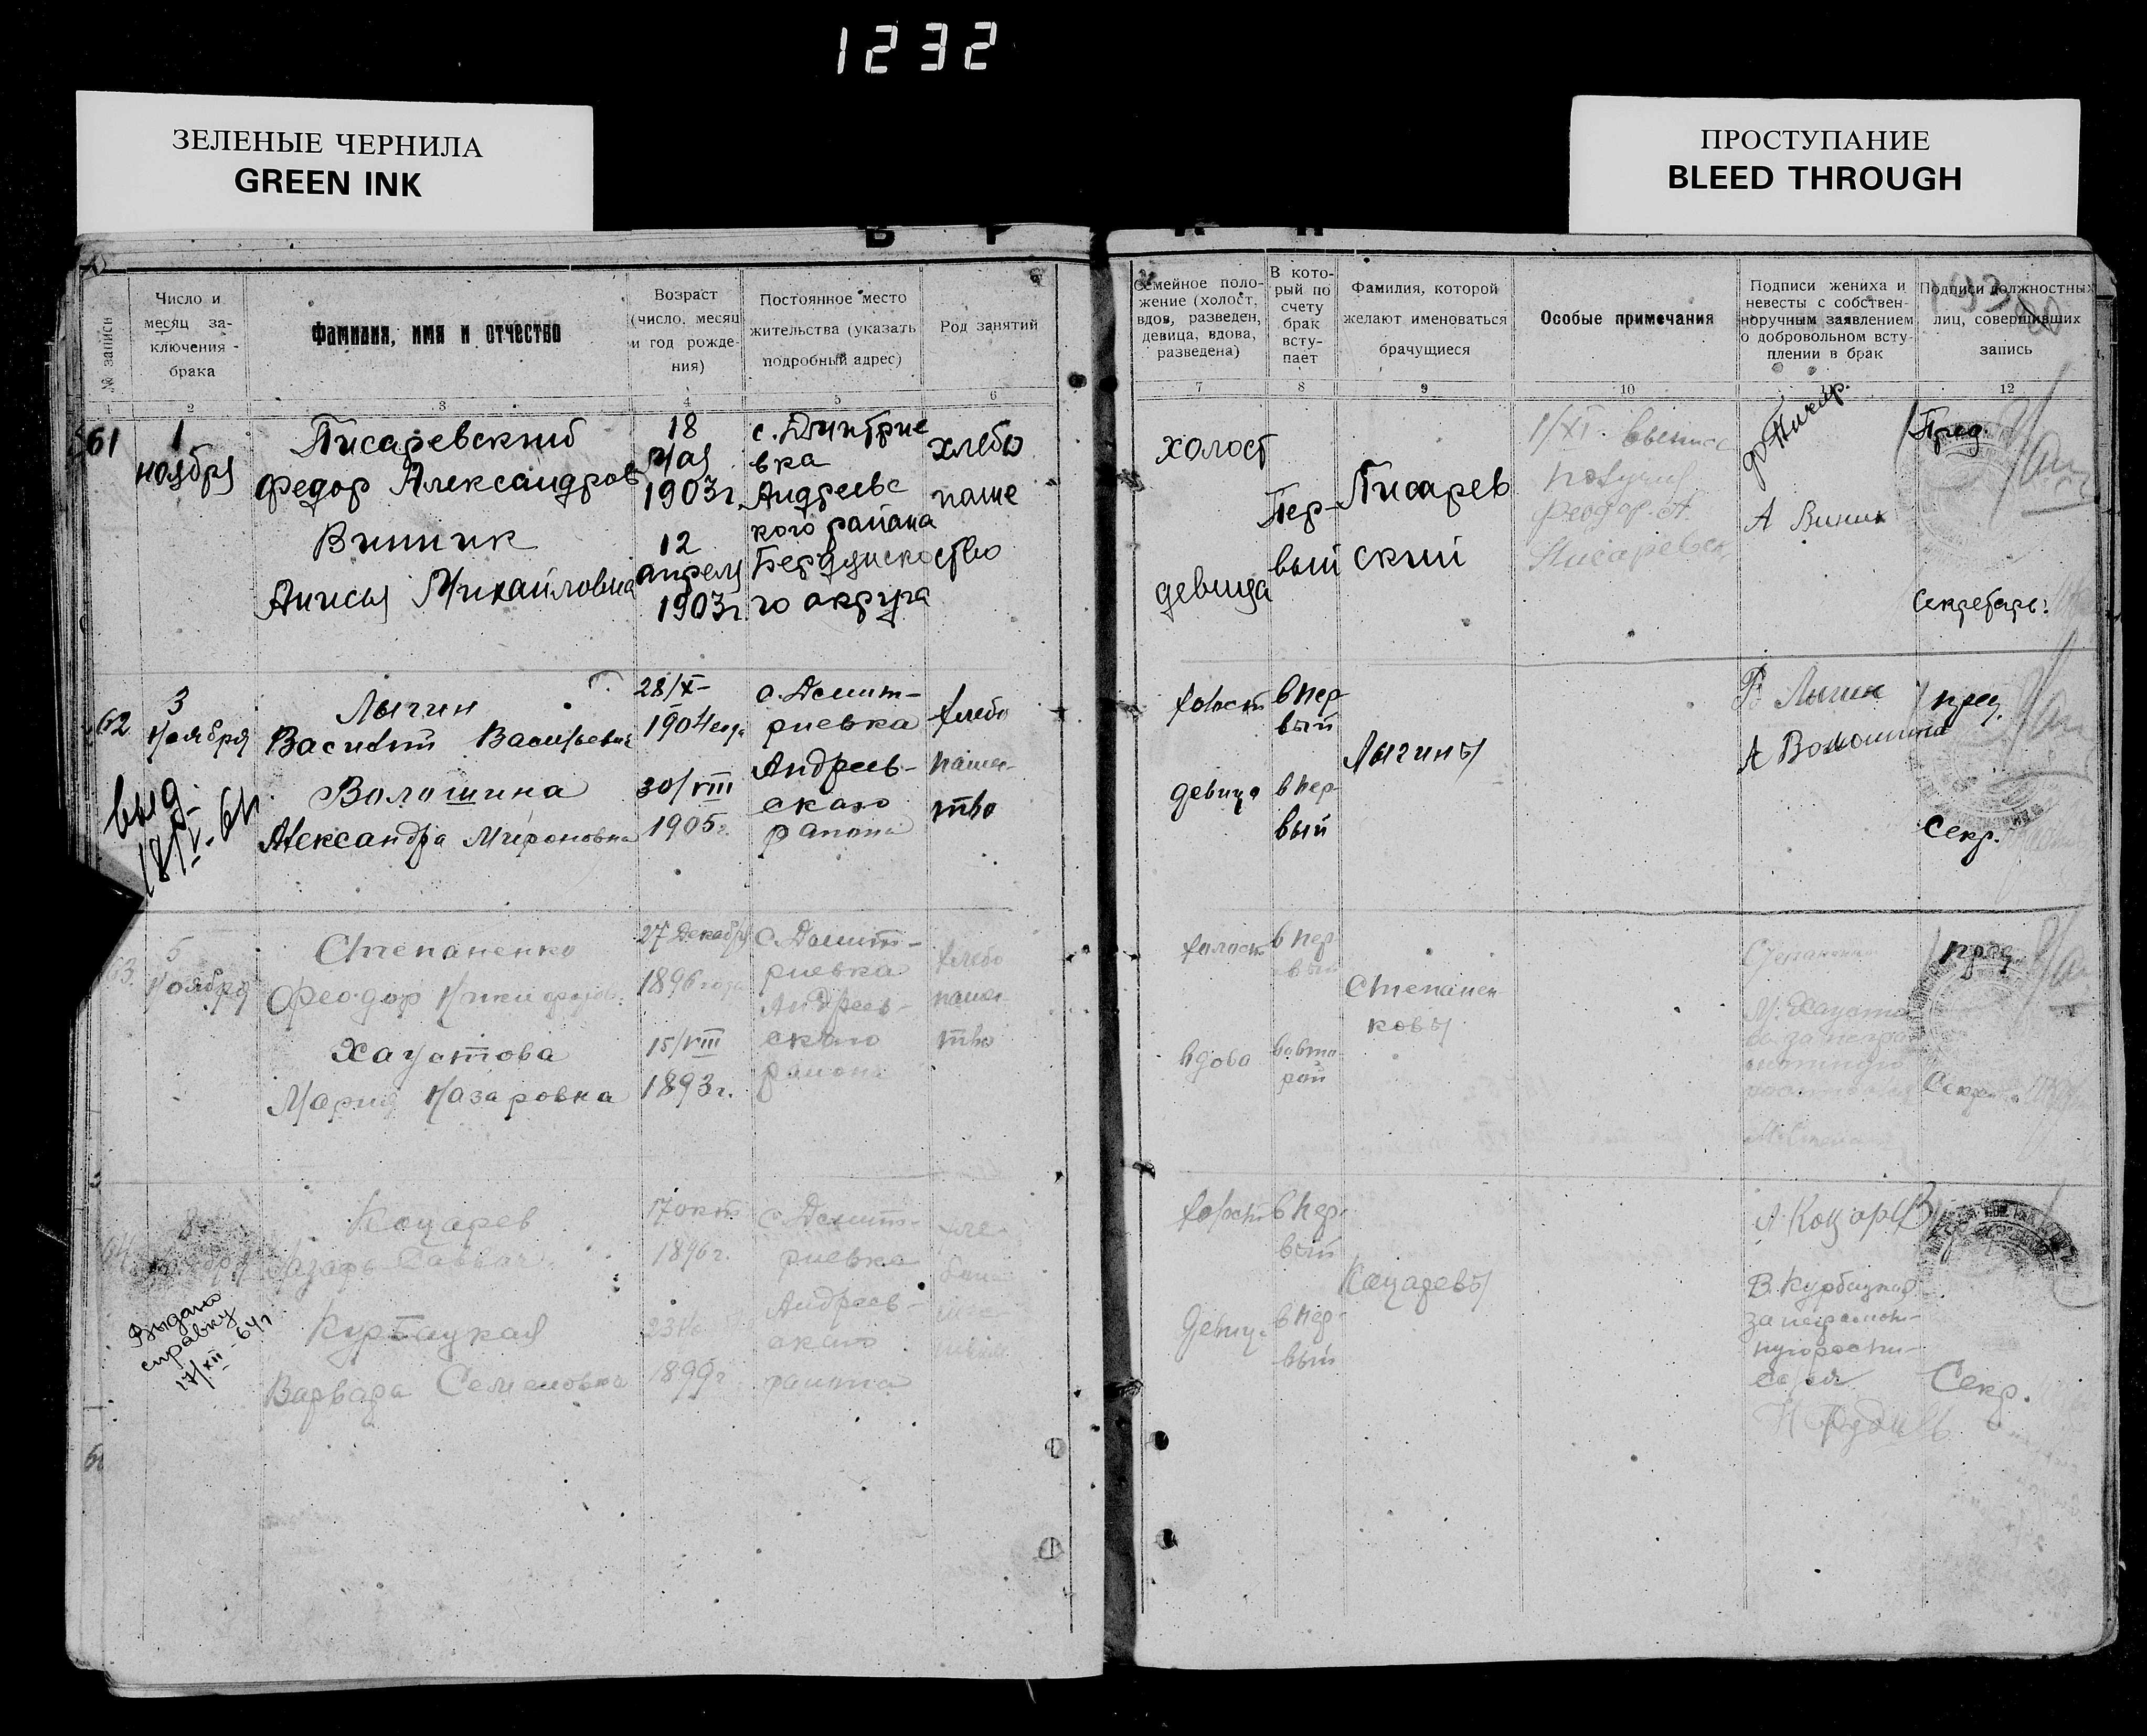 1232
ЗЕЛЕНЫЕ ЧЕРНИЛА
GREEN INK
ПРОСТУПАНИЕ
BLEED THROUGH
№ записи
Число и
месяц за-
ключения
брака
Фамилия, имя и отчество
Возраст
(число, месяц
и год рожде-
ния)
Постоянное место
жительства (указать
подробный адрес)
Род занятий
Семейное поло-
жение (холост,
вдов, разведен,
девица, вдова,
разведена)
В кото-
рый по
счету
брак
всту-
пает
Фамилия, которой
желают именоваться
брачущиеся
Особые примечания
Подписи жениха и
невесты с собствен-
норучным заявлением
о добровольном всту-
плении в брак
Подписи должностных
лиц, совершивших
запись
1 2 3 4 5 6 7 8 9 10 11 12
61
1
ноября
Писаревский
Федор Александров
Винник
Анисья Михайловна
18
Мая
1903г.
12
апреля
1903г.
с. Дмитрие
вка
Андреевс
кого района
Бердянско
го округа
хлебо
паше
ство
холост
девица
Пер-
вый
Писарев
ский
1/XI. выпись
получил
Феодор А.
Писаревск
А Винник
Пред.
Секретарь:
62
3
Ноября
Лыгин
Василий Васильевич
Волошина
Александра Мироновна
28/X-
1904года
30/VIII
1905г.
с. Дмит-
риевка
Андреев-
скаго
района
хлебо
пашес-
тво
холост
девица
в пер
вый
в пер
вый
Лыгины
В Лыгин
А Волошина
пред.
Секр.
выд.
18/V-61г.
63.
5
Ноября
Степаненко
Феодор Никифоров.
Хаустова
Мария Назаровна
27 Декабря
1896 года
15/VIII
1893г.
с. Дмит-
риевка
Андреев-
скаго
района
хлебо
пашес-
тво
холост
вдова
в пер
вый
во вто-
рой
Степанен-
ковы
Степаненко
М. Хаустова
за неграмотную
пред.
Секр.
64
8
Ноября
Коцарев
Лазарь Саввич.
Курбацкая
Варвара Семеновна
17 окт
1896г.
1899г
с. Дмит-
риевка
Андреев-
скаго
района
холост
девица
в пер-
вый
в пер-
вый
Коцаревы
Л. Коцарев
В. Курбацкая
за неграмот-
ную роспи-
сался
Секр.
Выдано
справку
17/XII-64г